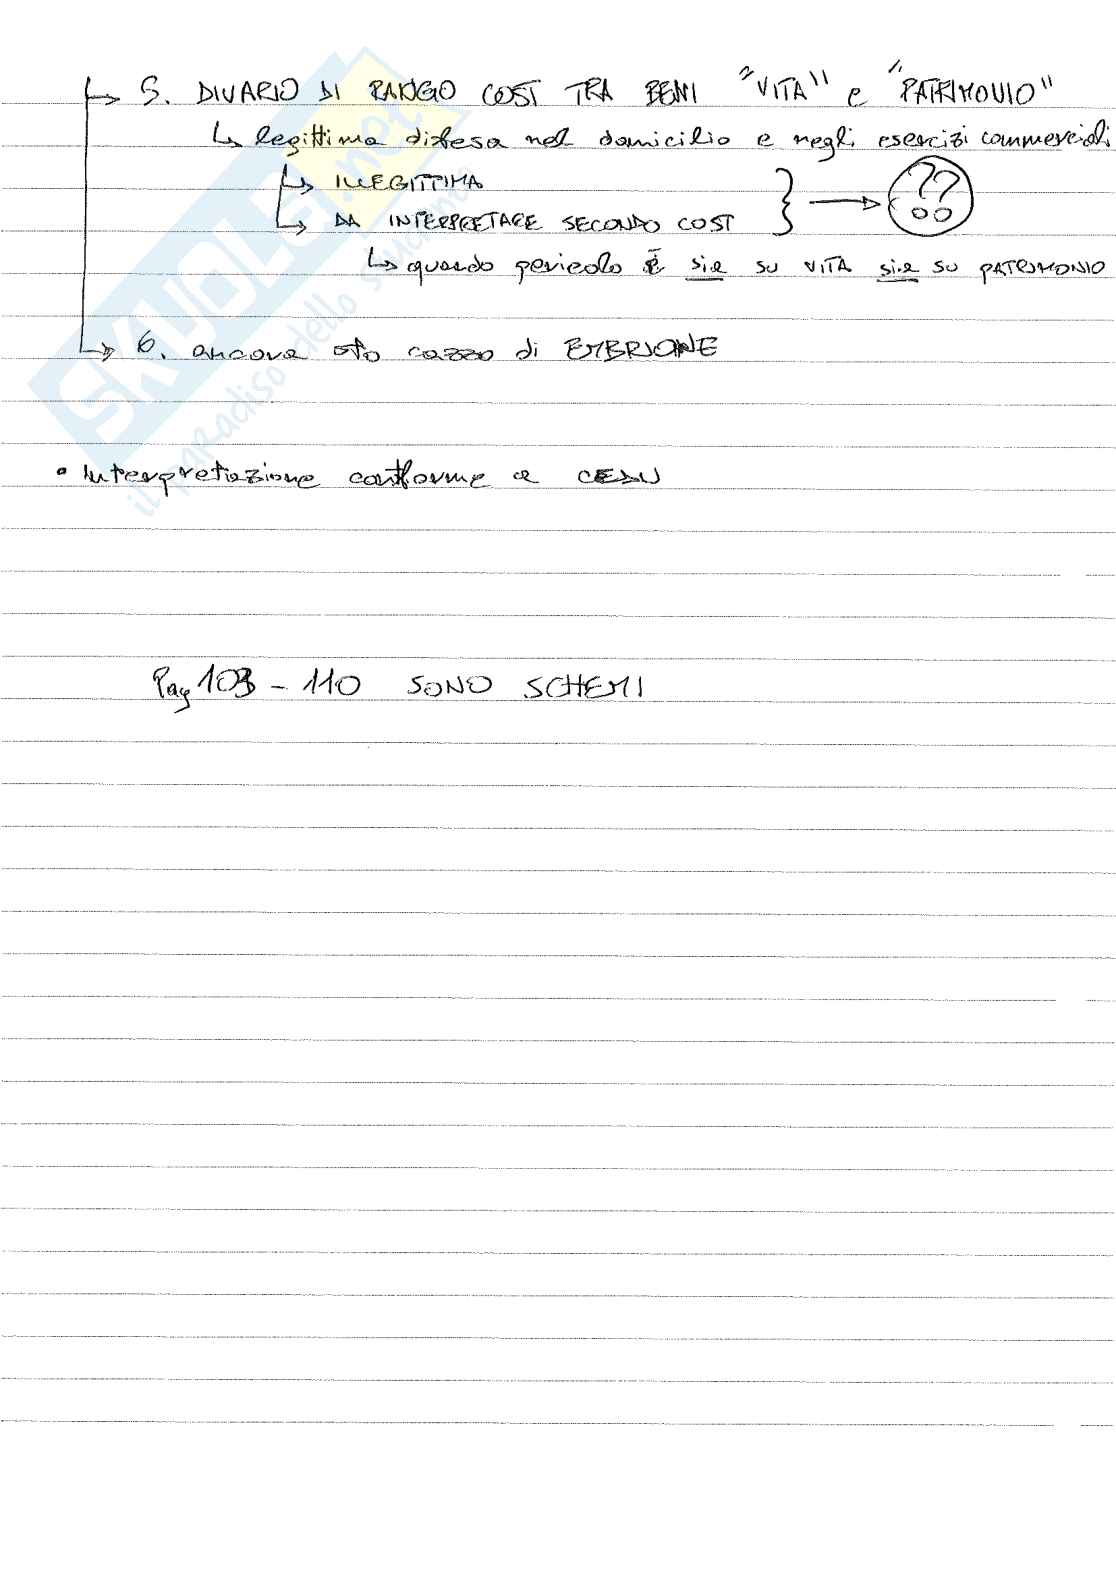 ↳ 5. DIVARIO DI RANGO COST TRA BENI "VITA" e "PATRIMONIO"
↳ legittima difesa nel domicilio e negli esercizi commerciali
↳ ILLEGITTIMA
↳ DA INTERPRETARE SECONDO COST } → ??
↳ quando pericolo è sia su VITA sia su PATRIMONIO
↳ 6. ancora sto cazzo di EMBRIONE
• Interpretazione conforme a CEDU
Pag 103 - 110 SONO SCHEMI
SKUOLA.net
il paradiso dello studente